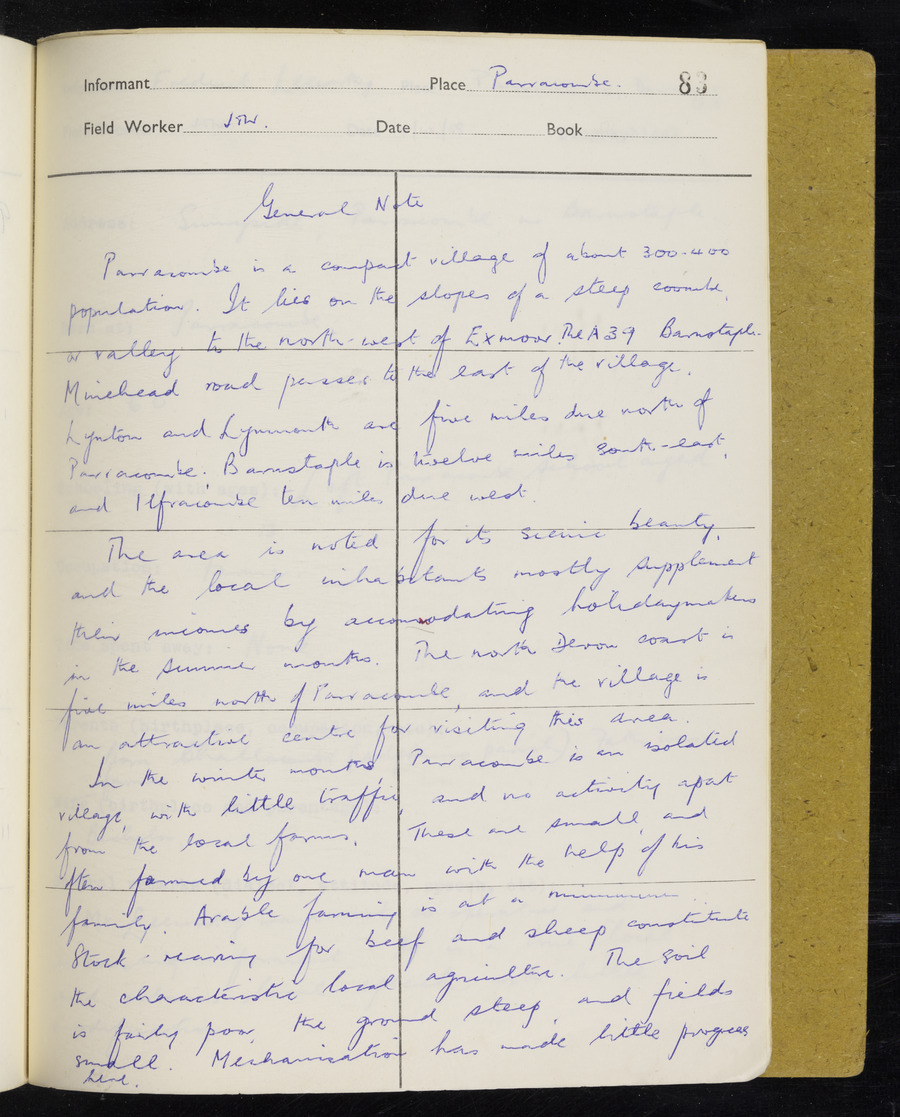 Informant Place Parracombe. 83
Field Worker JTW. Date Book
General Note
Parracombe is a compact village of about 300-400
population. It lies on the slopes of a steep coombe,
or valley to the north-west of Exmoor. The A39 Barnstaple-
Minehead road passes to the east of the village.
Lynton and Lynmouth are five miles due north of
Parracombe. Barnstaple is twelve miles south-east,
and Ilfracombe ten miles due west.
The area is noted for its scenic beauty,
and the local inhabitants mostly supplement
their incomes by accomodating holidaymakers
in the summer months. The north Devon coast is
five miles north of Parracombe, and the village is
an attractive centre for visiting this area.
In the winter months, Parracombe is an isolated
village, with little traffic, and no activity apart
from the local farms. These are small, and
often farmed by one man with the help of his
family. Arable farming is at a minimum.
Stock-rearing for beef and sheep constitute
the characteristic local agriculture. The soil
is fairly poor, the ground steep, and fields
small. Mechanisation has made little progress
here.